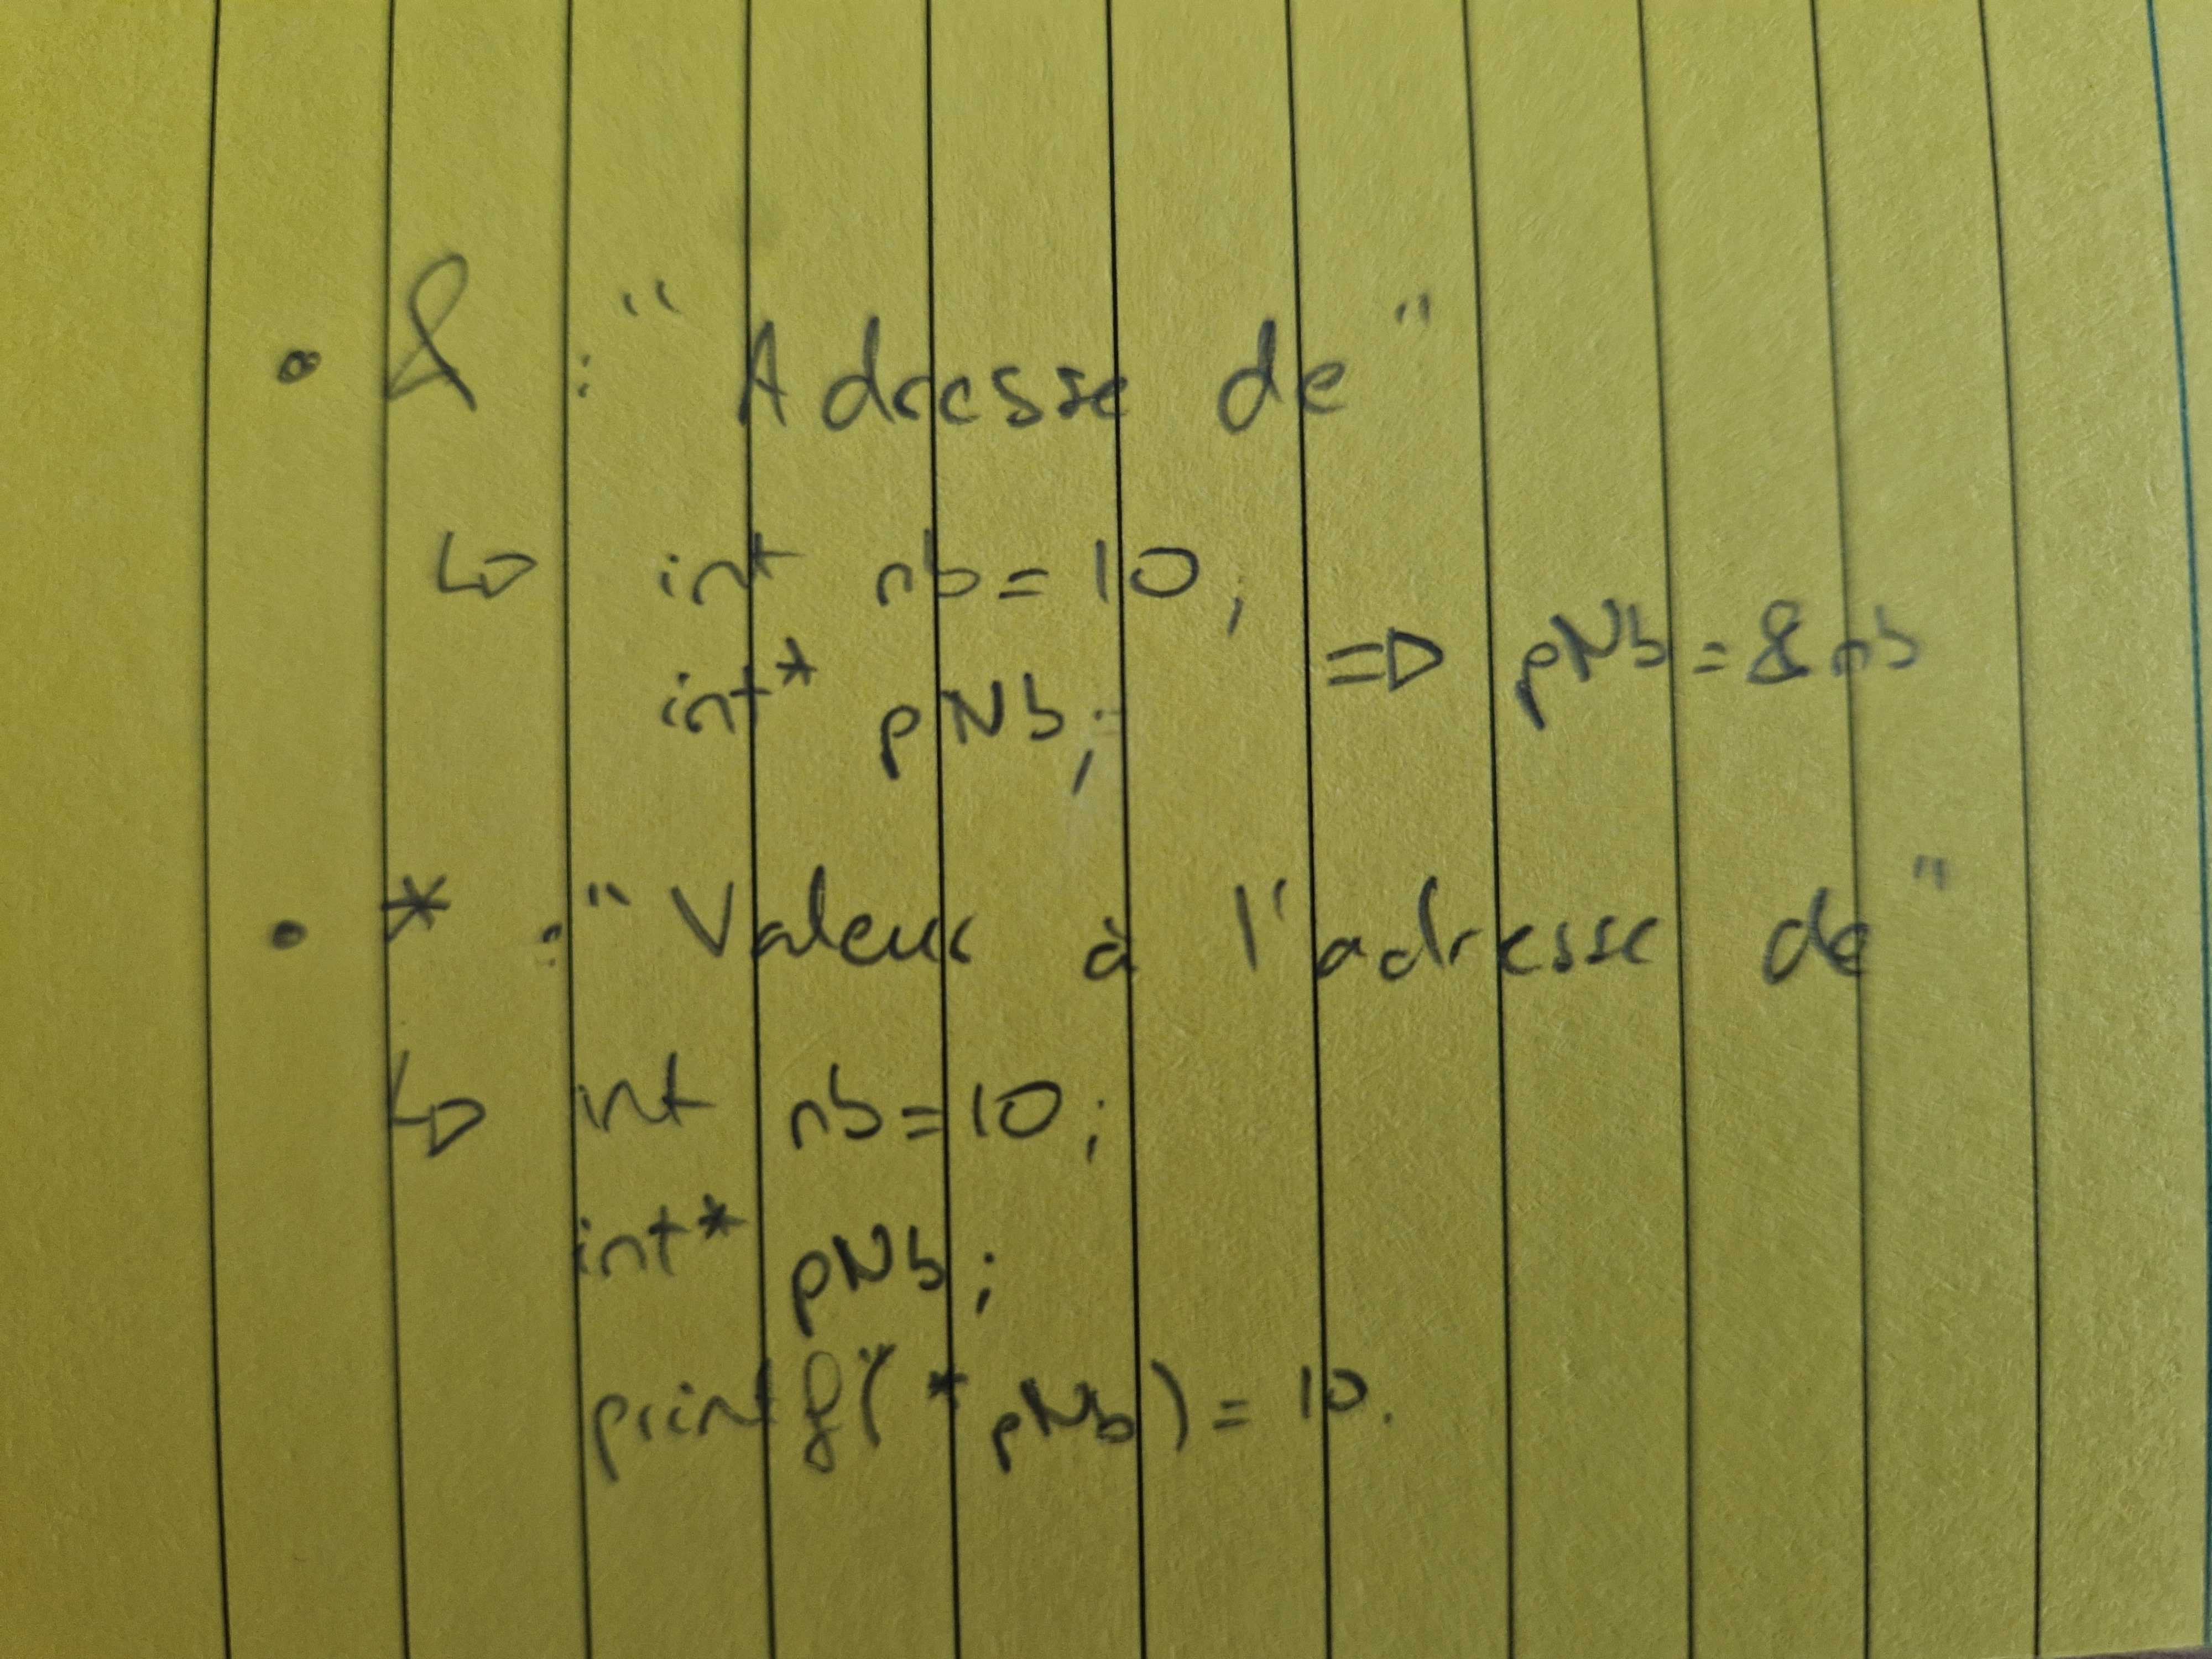 • & : "Adresse de"
↳ int nb = 10;
int* pNb; => pNb = &nb
• * : "Valeur à l'adresse de"
↳ int nb = 10;
int* pNb;
printf(*pNb) = 10.